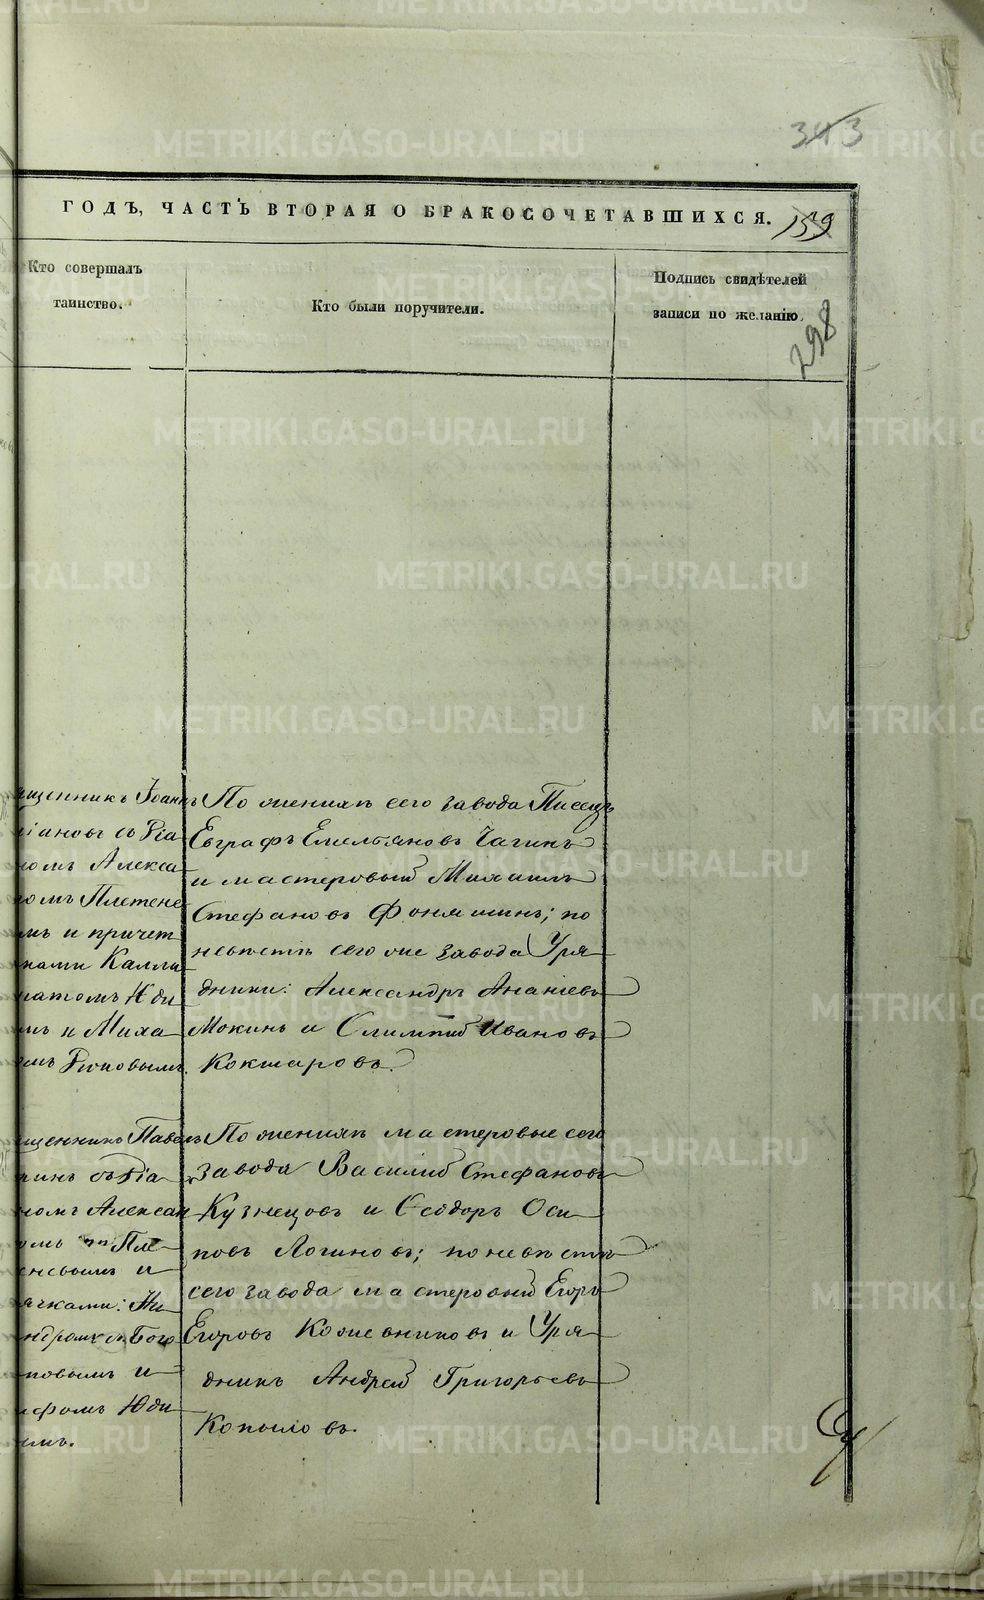 343
ГОДЪ, ЧАСТЬ ВТОРАЯ О БРАКОСОЧЕТАВШИХСЯ. 159
Кто совершалъ
таинство.
Кто были поручители.
Подпись свидѣтелей
записи по желанію.
298
щенникъ Іоаннъ
іановъ съ Діа
номъ Алекса
омъ Плетене
мъ и причет
ками Калли
атомъ Юди
мъ и Миха
омъ Поповымъ.
По женихѣ сего завода Писецъ
Евграфъ Емельяновъ Чагинъ
и мастеровый Михаилъ
Стефановъ Фоминыхъ; по
невѣстѣ сего же завода Уря
дники: Александръ Ананіевъ
Мокинъ и Олимпій Ивановъ
Кокшаровъ.
щенникъ Павелъ
инъ съ Діа
номъ Алексан
омъ Пле
невымъ и
чками:
Бого
повымъ и
ифомъ Юди
ымъ.
По женихѣ мастеровые сего
завода Василій Стефановъ
Кузнецовъ и Ѳеодоръ Оси
повъ Логиновъ; по невѣстѣ
сего завода мастеровый Егоръ
Егоровъ Кожевниковъ и Уря
дникъ Андрей Григорьевъ
Копыловъ.
METRIKI.GASO-URAL.RU